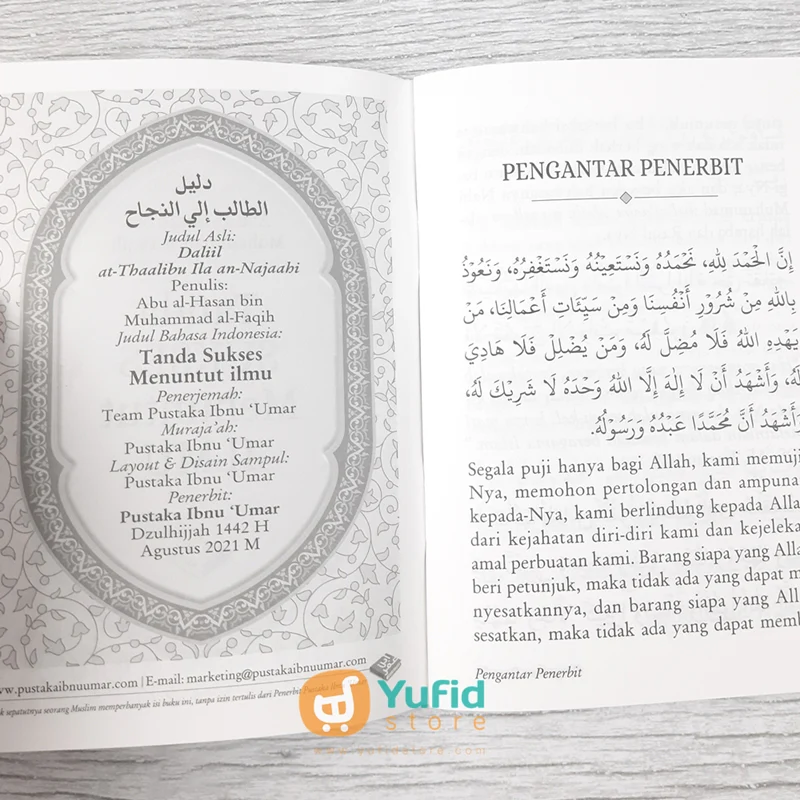 دليل
الطالب إلي النجاح
Judul Asli:
Daliil
at-Thaalibu Ila an-Najaahi
Penulis:
Abu al-Hasan bin
Muhammad al-Faqih
Judul Bahasa Indonesia:
Tanda Sukses
Menuntut ilmu
Penerjemah:
Team Pustaka Ibnu ‘Umar
Muraja’ah:
Pustaka Ibnu ‘Umar
Layout & Disain Sampul:
Pustaka Ibnu ‘Umar
Penerbit:
Pustaka Ibnu ‘Umar
Dzulhijjah 1442 H
Agustus 2021 M
www.pustakaibnuumar.com | E-mail: marketing@pustakaibnuumar.com
sepatutnya seorang Muslim memperbanyak isi buku ini, tanpa izin tertulis dari Penerbit Pustaka
PENGANTAR PENERBIT
إِنَّ الْحَمْدَ لِلّٰهِ، نَحْمَدُهُ وَنَسْتَعِيْنُهُ وَنَسْتَغْفِرُهُ، وَنَعُوْذُ
بِاللهِ مِنْ شُرُوْرِ أَنْفُسِنَا وَمِنْ سَيِّئَاتِ أَعْمَالِنَا، مَنْ
يَهْدِهِ اللهُ فَلَا مُضِلَّ لَهُ، وَمَنْ يُضْلِلْ فَلَا هَادِيَ
لَهُ، وَأَشْهَدُ أَنْ لَا إِلٰهَ إِلَّا اللهُ وَحْدَهُ لَا شَرِيْكَ لَهُ،
وَأَشْهَدُ أَنَّ مُحَمَّدًا عَبْدُهُ وَرَسُوْلُهُ.
Segala puji hanya bagi Allah, kami memuji
Nya, memohon pertolongan dan ampuna
kepada-Nya, kami berlindung kepada Alla
dari kejahatan diri-diri kami dan kejeleka
amal perbuatan kami. Barang siapa yang Alla
beri petunjuk, maka tidak ada yang dapat m
nyesatkannya, dan barang siapa yang All
sesatkan, maka tidak ada yang dapat memb
Pengantar Penerbit
Yufid
store
www.yufidstore.com